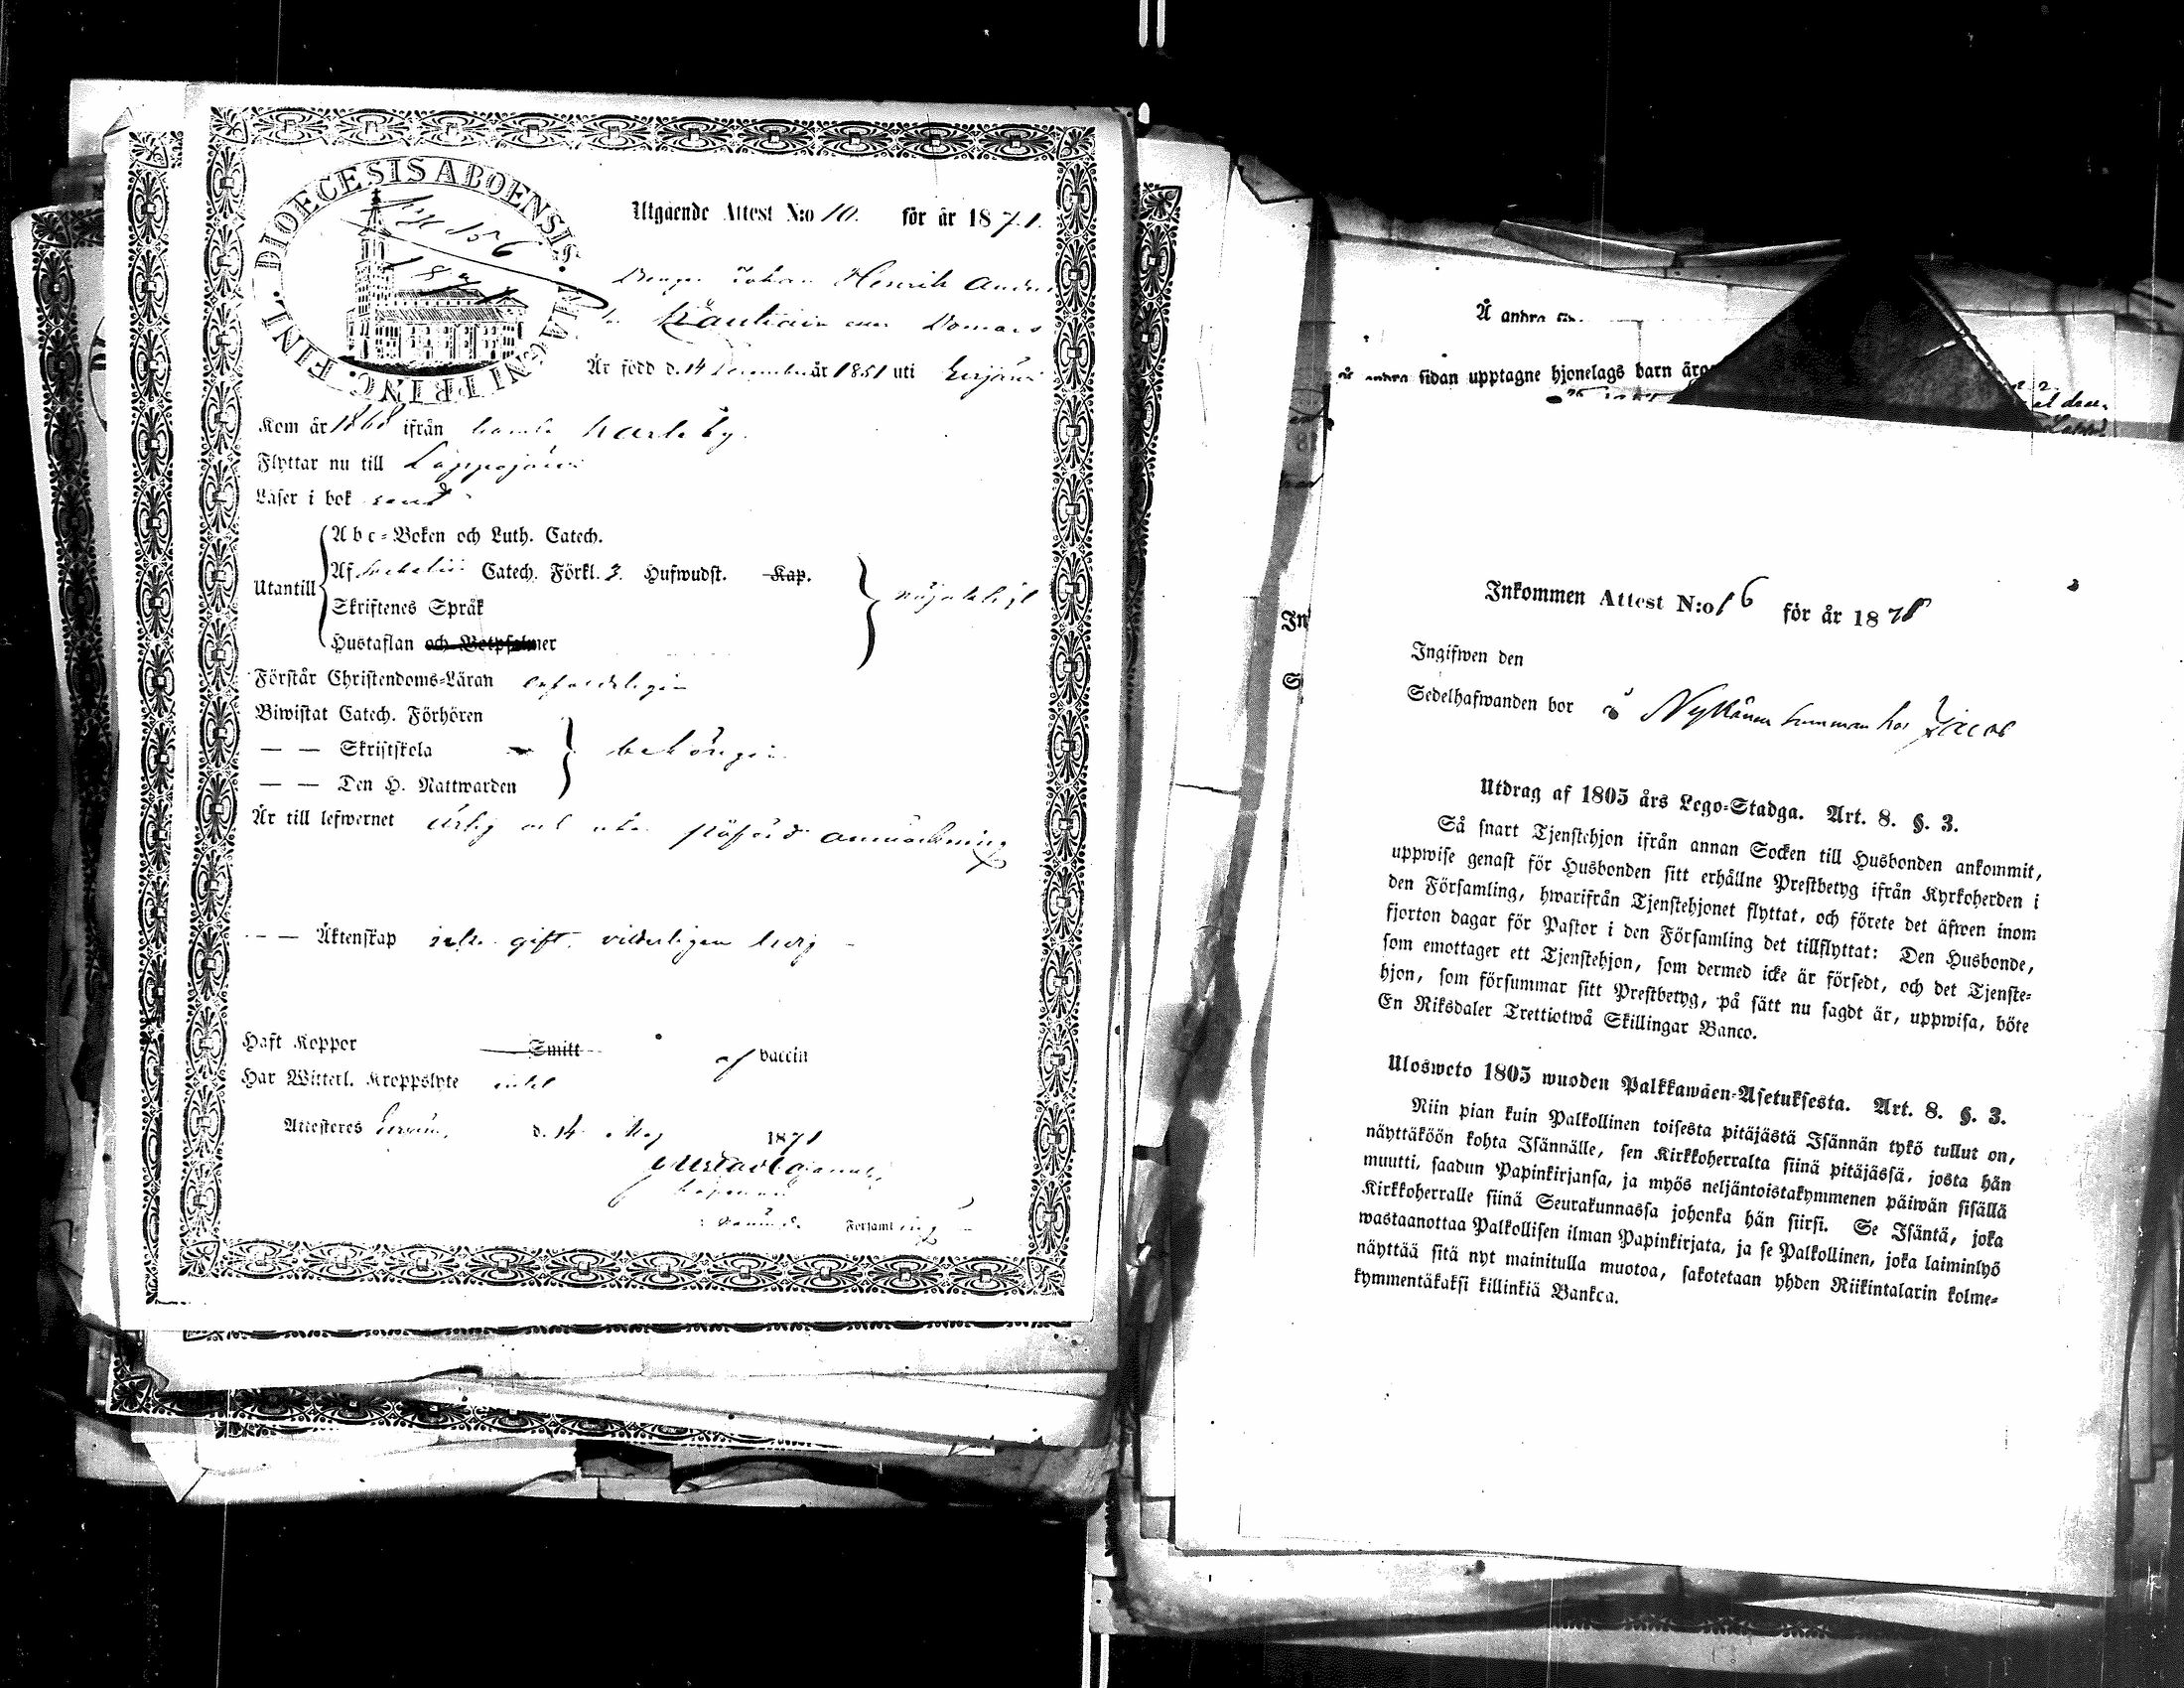 DIOECESIS ABOENSIS. MAGNI PRINC. FINL.
156
Utgaende Attest N:o 10. för år 1871.
Drengen Johan Henrik
Domars
Är född d. 14 December år 1851 uti
Kom år 1868 ifrån Gamla Karleby.
Flyttar nu till Lappajärvi
Läser i bok
Utantill
Abc-Boken och Luth. Catech.
Af Svebelii Catech. Förkl. 3. Hufwudst. Kap.
Skriftenes Språk
Hustaflan och Botpsalmer
nöjaktigt
Förstår Christendoms-Läran
Biwistat Catech. Förhören
— — Skriftskola
— — Den H. Nattwarden
behörigen
Är till lefwernet ärlig och utan påförd anmärkning
— — Äktenskap icke gift, vitterligen ledig
Haft Koppor Smitt af vaccin
Har Witterl. Kroppslyte intet
Attesteres d. 14 Maj 1871
Gustaf
Kapellan
Församling
Å andra sid
å andra sidan upptagne hjonelags barn äro
Inkommen Attest N:o 16 för år 1871
Ingifwen den
Sedelhafwanden bor å hos Jacob
Utdrag af 1805 års Lego-Stadga. Art. 8. §. 3.
Så snart Tjenstehjon ifrån annan Socken till Husbonden ankommit,
uppwise genast för Husbonden sitt erhållne Prestbetyg ifrån Kyrkoherden i
den Församling, hwarifrån Tjenstehjonet flyttat, och förete det äfwen inom
fjorton dagar för Pastor i den Församling det tillflyttat: Den Husbonde,
som emottager ett Tjenstehjon, som dermed icke är försedt, och det Tjenste-
hjon, som försummar sitt Prestbetyg, på sätt nu sagdt är, uppwisa, böte
En Riksdaler Trettiotwå Skillingar Banco.
Ulosweto 1805 wuoden Palkkawäen-Asetuksesta. Art. 8. §. 3.
Niin pian kuin Palkollinen toisesta pitäjästä Isännän tykö tullut on,
näyttäköön kohta Isännälle, sen Kirkkoherralta siinä pitäjässä, josta hän
muutti, saadun Papinkirjansa, ja myös neljäntoistakymmenen päiwän sisällä
Kirkkoherralle siinä Seurakunnassa johonka hän siirsi. Se Isäntä, joka
wastaanottaa Palkollisen ilman Papinkirjata, ja se Palkollinen, joka laiminlyö
näyttää sitä nyt mainitulla muotoa, sakotetaan yhden Riikintalarin kolme-
kymmentäkaksi killinkiä Bankca.